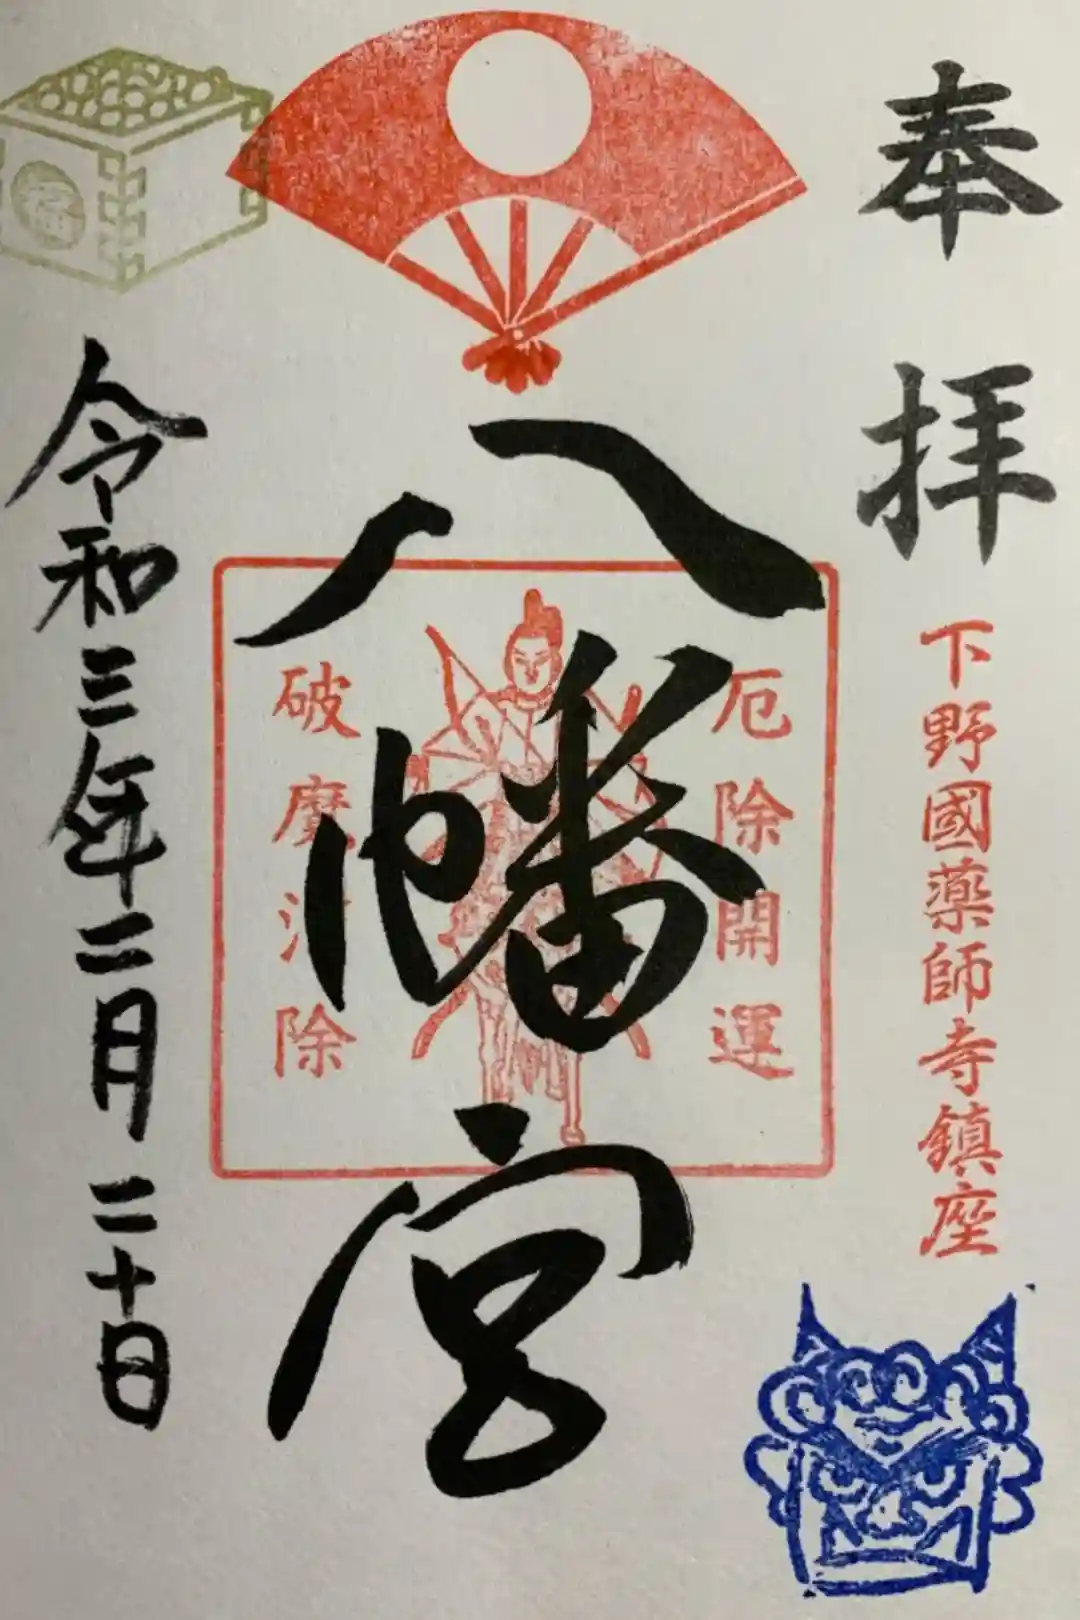 奉拝
下野國薬師寺鎮座
厄除開運
八幡宮
破魔消除
令和三年二月二十日
福